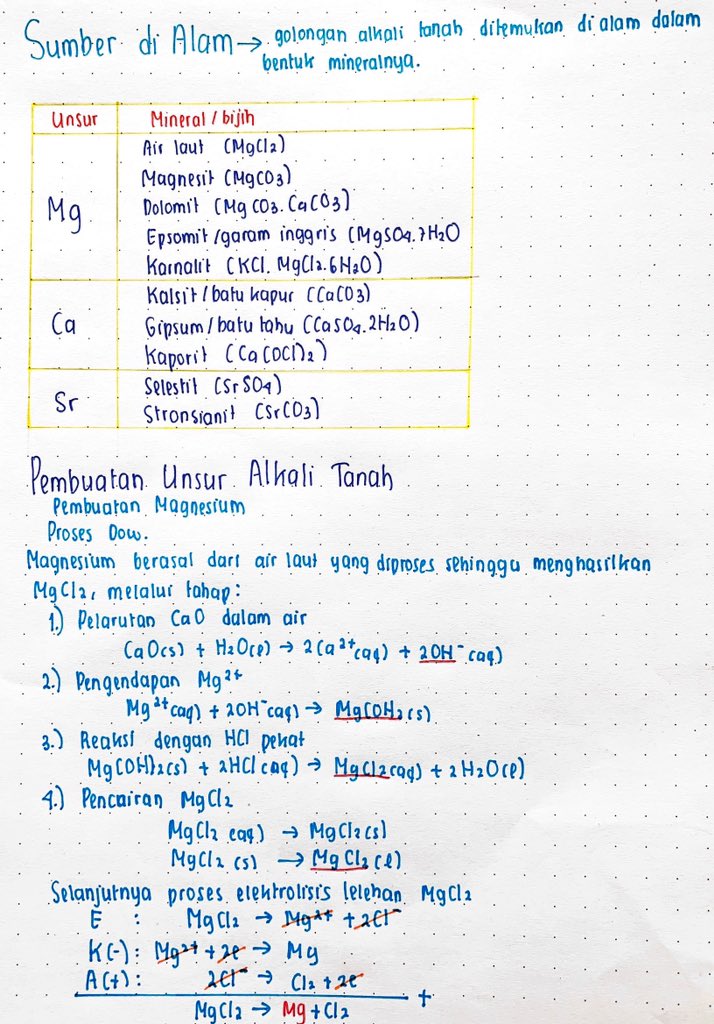 Sumber di Alam → golongan alkali tanah ditemukan di alam dalam
bentuk mineralnya.
Unsur Mineral / bijih
Mg
Air laut (MgCl₂)
Magnesit (MgCO₃)
Dolomit (MgCO₃.CaCO₃)
Epsomit/garam inggris (MgSO₄.7H₂O
Karnalit (KCl.MgCl₂.6H₂O)
Ca
Kalsit/batu kapur (CaCO₃)
Gipsum/batu tahu (CaSO₄.2H₂O)
Kaporit (Ca(OCl)₂)
Sr
Selestit (SrSO₄)
Stronsianit (SrCO₃)
Pembuatan Unsur Alkali Tanah
Pembuatan Magnesium
Proses Dow.
Magnesium berasal dari air laut yang diproses sehingga menghasilkan
MgCl₂, melalui tahap:
1.) Pelarutan CaO dalam air
CaO(s) + H₂O(l) → 2Ca²⁺(aq) + 2OH⁻(aq)
2.) Pengendapan Mg²⁺
Mg²⁺(aq) + 2OH⁻(aq) → Mg(OH)₂(s)
3.) Reaksi dengan HCl pekat
Mg(OH)₂(s) + 2HCl(aq) → MgCl₂(aq) + 2H₂O(l)
4.) Pencairan MgCl₂
MgCl₂ (aq) → MgCl₂(s)
MgCl₂ (s) → MgCl₂(l)
Selanjutnya proses elektrolisis lelehan MgCl₂
E : MgCl₂ → Mg²⁺ + 2Cl⁻
K(-): Mg²⁺ + 2e → Mg
A(+): 2Cl⁻ → Cl₂ + 2e
+
MgCl₂ → Mg + Cl₂